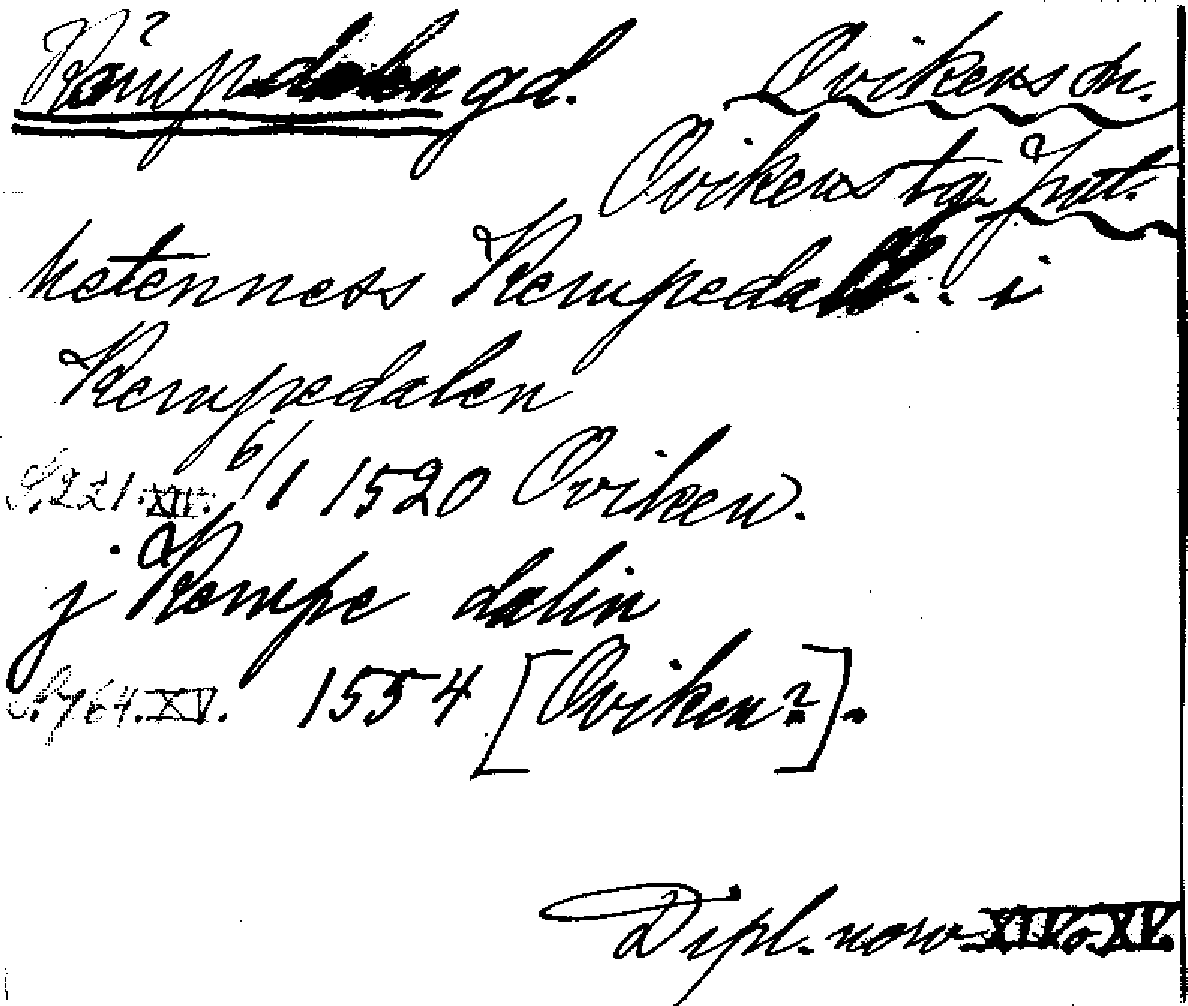 Kämpdalen gd. Ovikens sn.
Ovikens tg. Jmt.
hetenness Kempedal... i
Kempedalen
S.221.XIV. 6/1 1520 Oviken.
j Kempe dalin
S.764.XV. 1554 [Oviken?].
Dipl. norv. XIV o. XV.